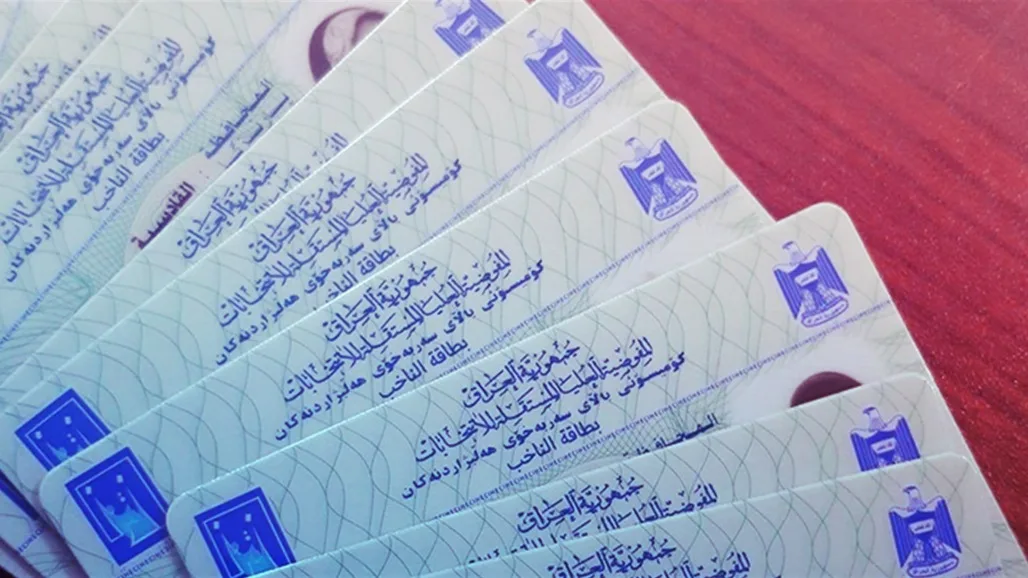 جمهورية العراق
المفوضية العليا المستقلة للانتخابات
كۆمسيۆنى بالاى سەربەخۆى هەلبژاردنەكان
بطاقة الناخب
القادسية
جمهورية العراق
جمهورية العراق
المفوضية العليا المستقلة للانتخابات
كۆمسيۆنى بالاى سەربەخۆى هەلبژاردنەكان
بطاقة الناخب
جمهورية العراق
المفوضية العليا المستقلة للانتخابات
كۆمسيۆنى بالاى سەربەخۆى هەلبژاردنەكان
بطاقة الناخب
جمهورية العراق
المفوضية العليا المستقلة للانتخابات
كۆمسيۆنى بالاى سەربەخۆى هەلبژاردنەكان
بطاقة الناخب
جمهورية العراق
المفوضية العليا المستقلة للانتخابات
جمهورية العراق